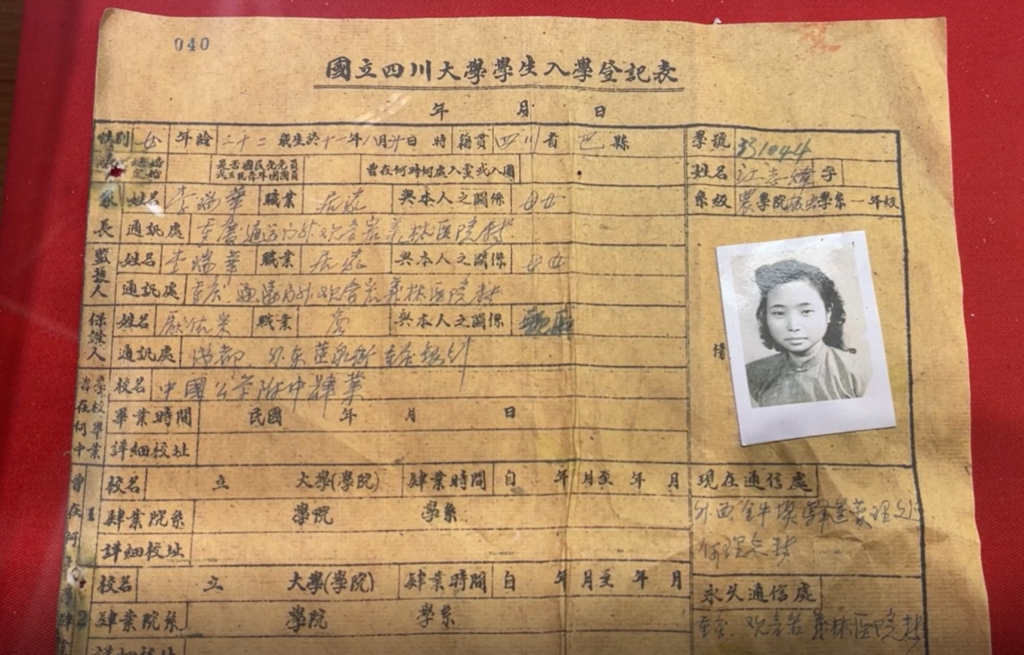 040
國立四川大學學生入學登記表
年 月 日
性別 女 年齡 二十二 歲生於十一年八月廿日 時 籍貫 四川省 巴 縣
是否國民党党員或三民青年團團員 曾在何時何處入黨或入團
學號 331044
姓名 江志煒 字
系級 農學院 學系一年級
家長 姓名 李瑞華 職業 與本人之關係 母女
通訊處 重慶通遠門外观音岩義林医院轉
監護人 姓名 李瑞華 職業 與本人之關係 母女
通訊處 重慶 通遠門外观音岩義林医院轉
保證人 姓名 職業 商 與本人之關係
通訊處 成都 外东
曾在何中學校畢業 校名 中國公学附中肄業
畢業時間 民國 年 月 日
詳細校址
曾在何
1 校名 立 大學(學院) 肄業時間 自 年 月至 年 月
肄業院系 學院 學系
詳細校址
2 校名 立 大學(學院) 肄業時間 自 年 月至 年 月
肄業院系 學院 學系
詳細校址
現在通信處
外西金牛壩 管理处
何理 轉
永久通信處
重慶 观音岩義林医院轉